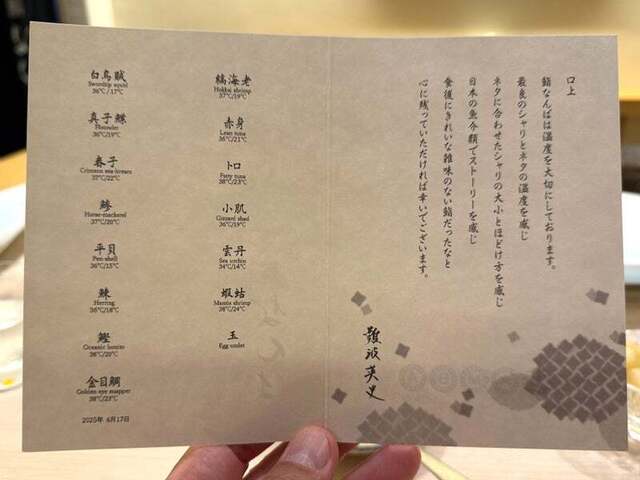 白烏賊
Swordtip squid
36℃/17℃
真子鰈
Flounder
36℃/19℃
春子
Crimson sea-bream
37℃/22℃
鯵
Horse-mackerel
37℃/20℃
平貝
Pen-shell
36℃/15℃
鰊
Herring
36℃/18℃
鰹
Oceanic bonito
38℃/20℃
金目鯛
Golden eye snapper
38℃/23℃
2025年 4月17日
縞海老
Hokkai shrimp
37℃/19℃
赤身
Lean tuna
36℃/21℃
トロ
Fatty tuna
38℃/23℃
小肌
Gizzard shad
36℃/19℃
雲丹
Sea urchin
34℃/14℃
蝦蛄
Mantis shrimp
38℃/24℃
玉
Egg omlet
口上
鮨なんばは温度を大切にしております。
最良のシャリとネタの温度を感じ
ネタに合わせたシャリの大小とほどけ方を感じ
日本の魚介類でストーリーを感じ
食後にきれいな雑味のない鮨だったなと
心に残っていただければ幸いでございます。
難波英史